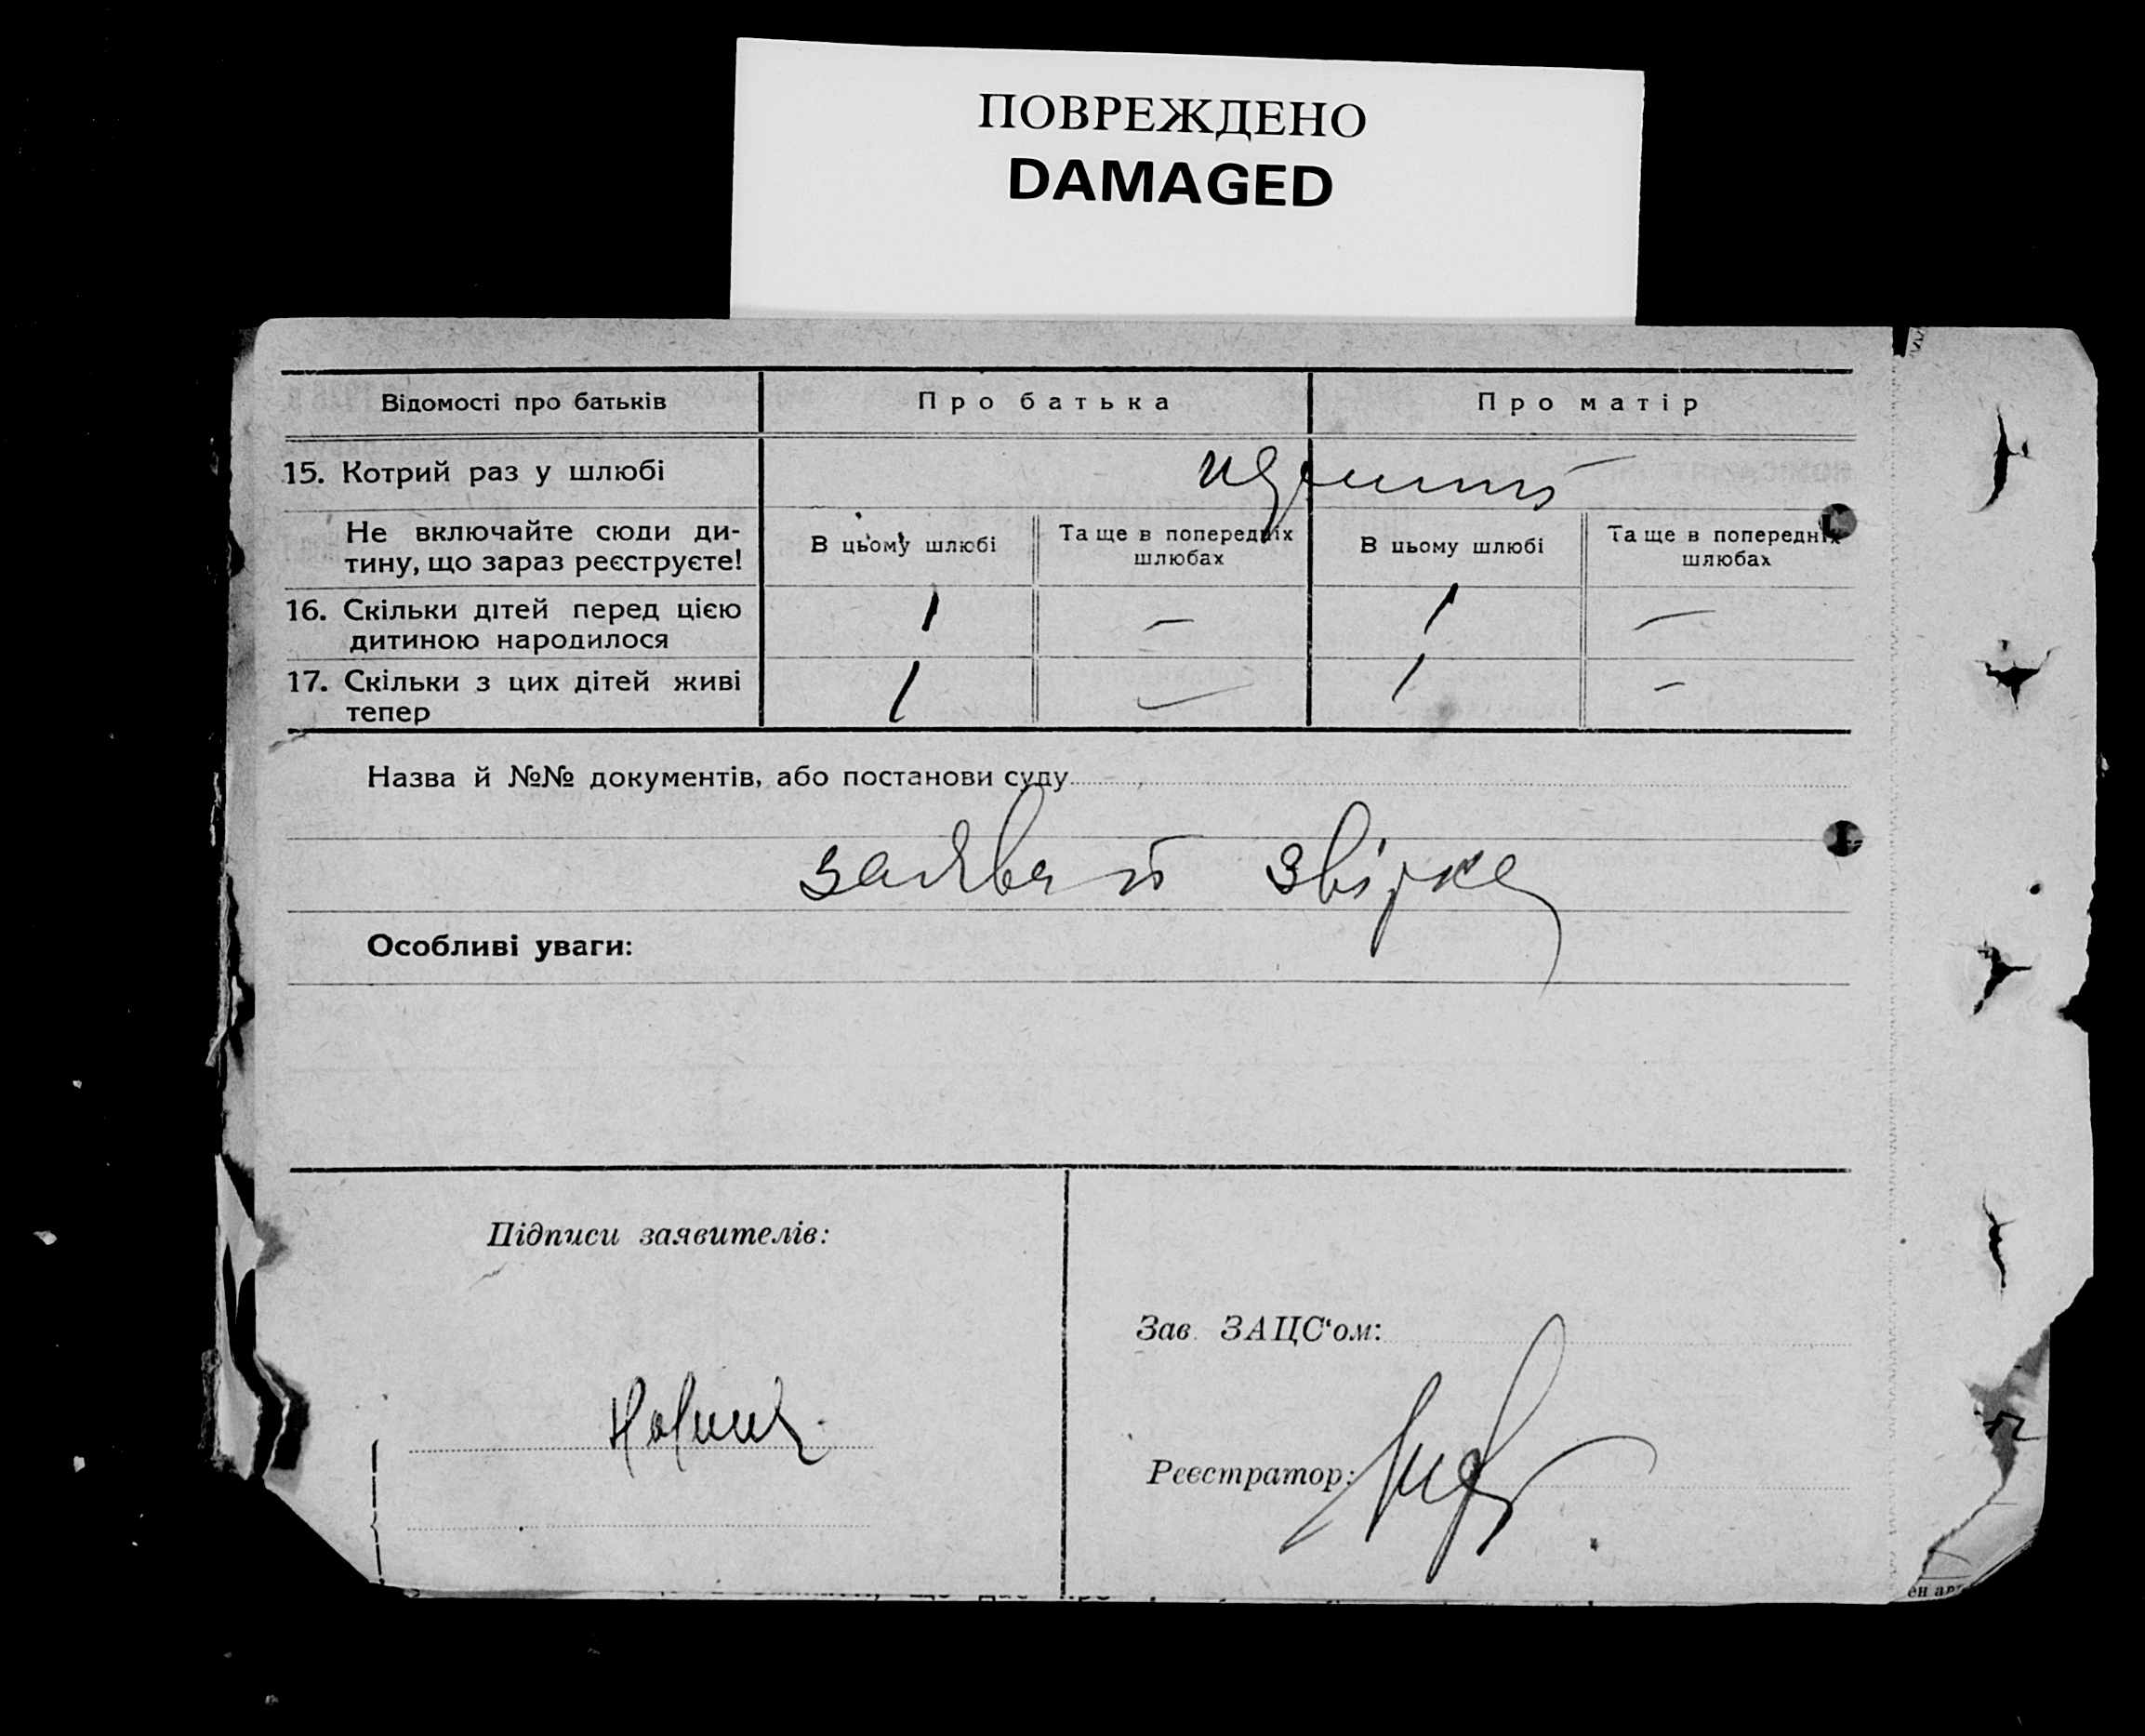 ПОВРЕЖДЕНО
DAMAGED
Відомості про батьків
Про батька
Про матір
15. Котрий раз у шлюбі
Не включайте сюди ди-
тину, що зараз реєструєте!
В цьому шлюбі
Та ще в попередніх
шлюбах
В цьому шлюбі
Та ще в попередніх
шлюбах
16. Скільки дітей перед цією
дитиною народилося
1
—
1
—
17. Скільки з цих дітей живі
тепер
1
—
1
—
Назва й №№ документів, або постанови суду
Особливі уваги:
Підписи заявителів:
Зав. ЗАЦС‘ом:
Реєстратор: